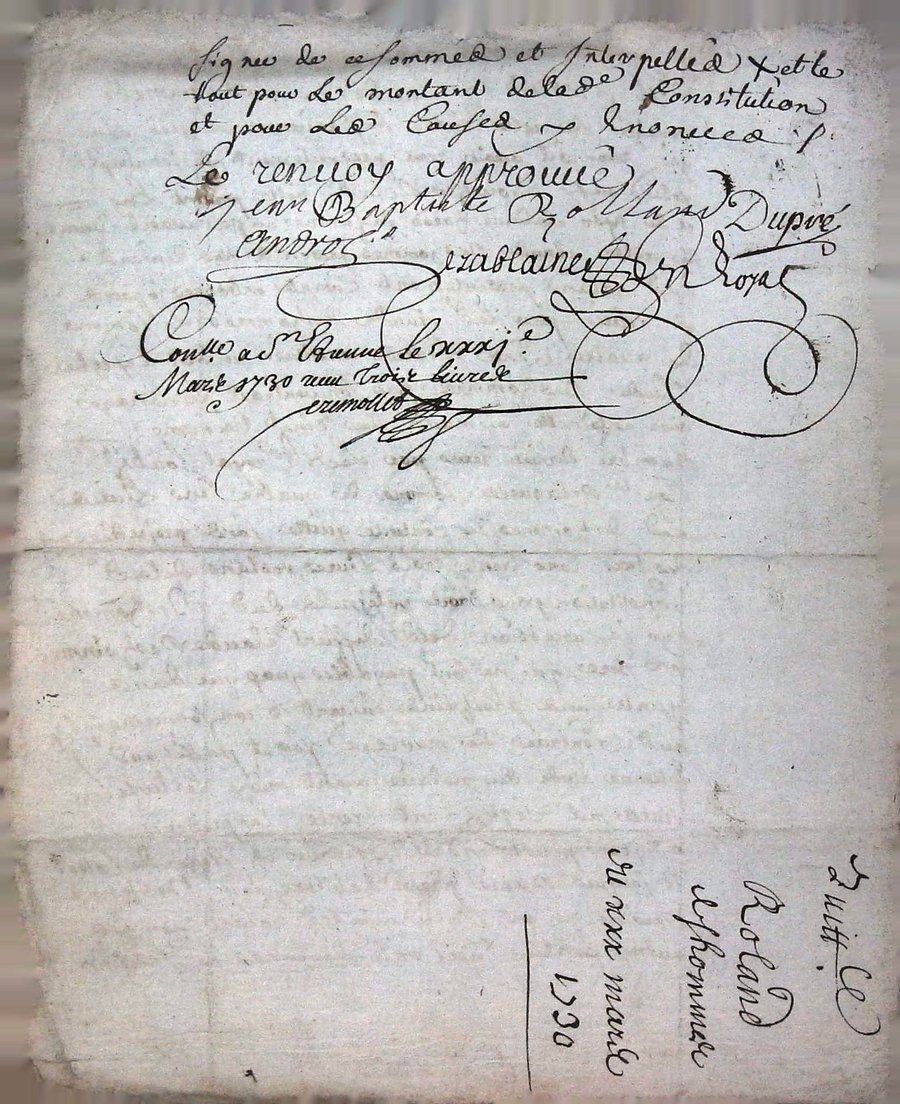 signer de ce sommés et Interpellés x et le
tout pour le montant de lade Constitution
et pour les Causes y Enoncees
Le renvoy approuvé
Jean Baptiste Rolland Dupré
Androl
Royal
Conlle a St Etienne le xxxj.e
Mars 1730 receu Trois livres
Quittce
Roland
du xxx mars
1730